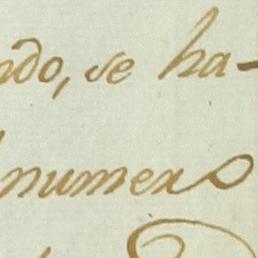 ndo, se ha-
numero